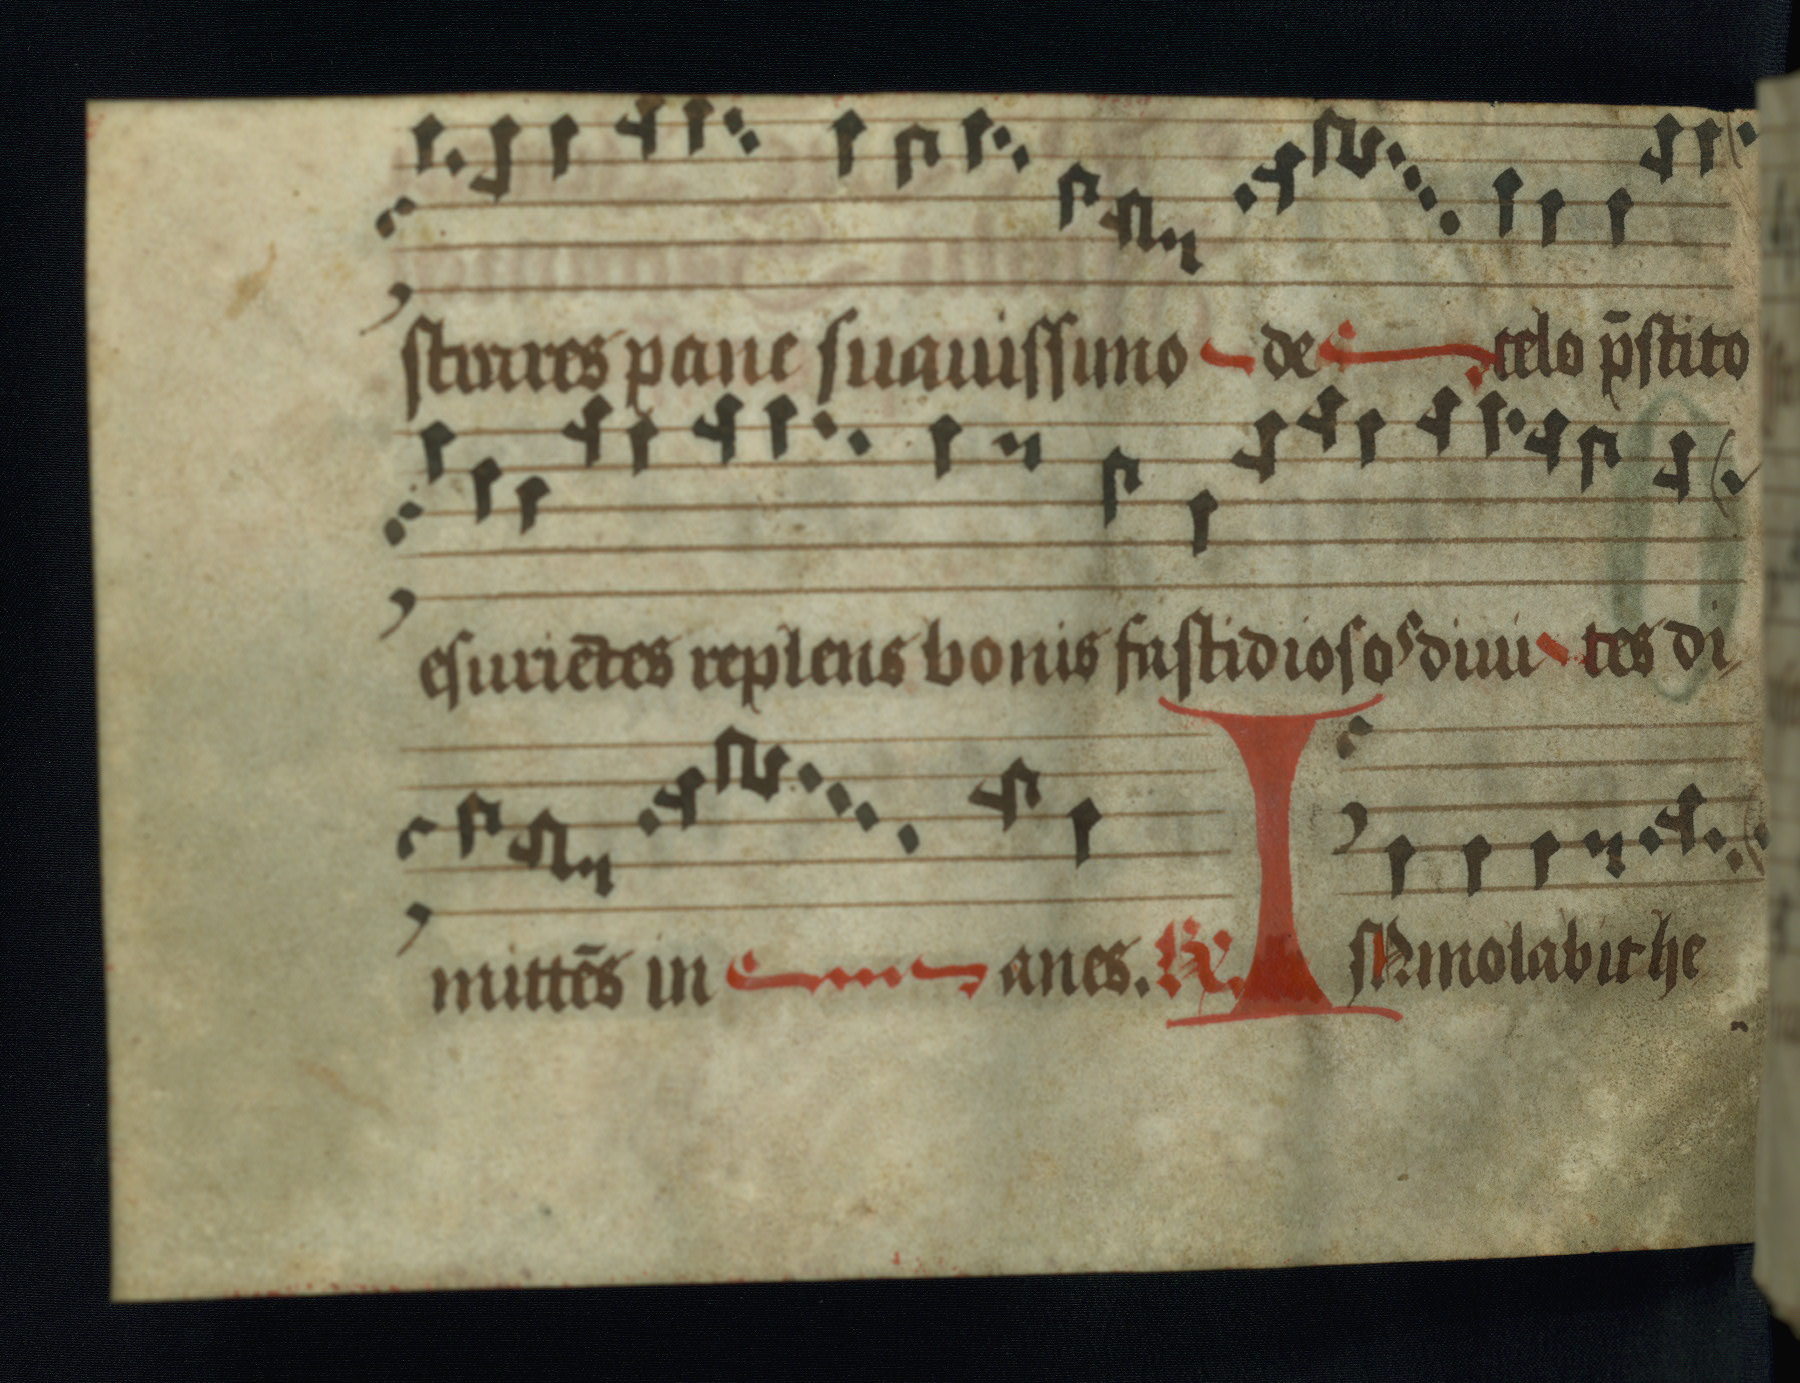 strares pane suauissimo de celo p̄stito
esuriētes replens bonis fastidiosos diui tes di
mittēs in anes. R. I
smolabit he